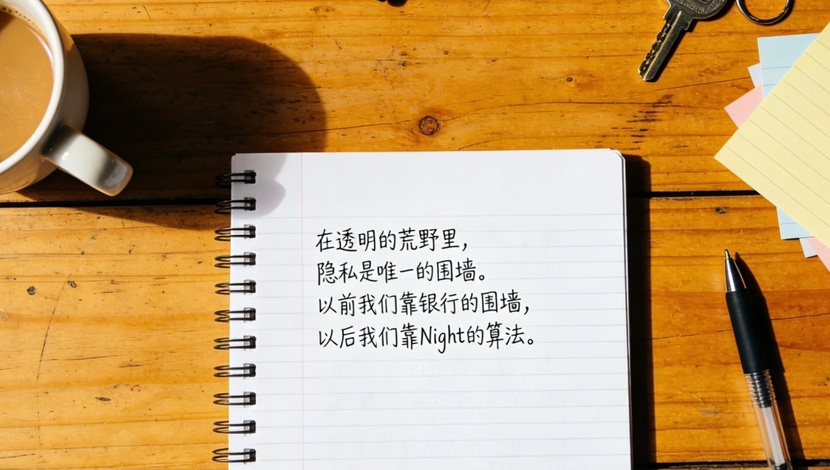 在透明的荒野里，
隐私是唯一的围墙。
以前我们靠银行的围墙，
以后我们靠Night的算法。